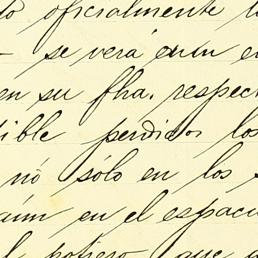 do oficialmente l
se verá aun e
en su fha. respec
ible perdidos los
nó sólo en los
aún en el espaci
l potrero que